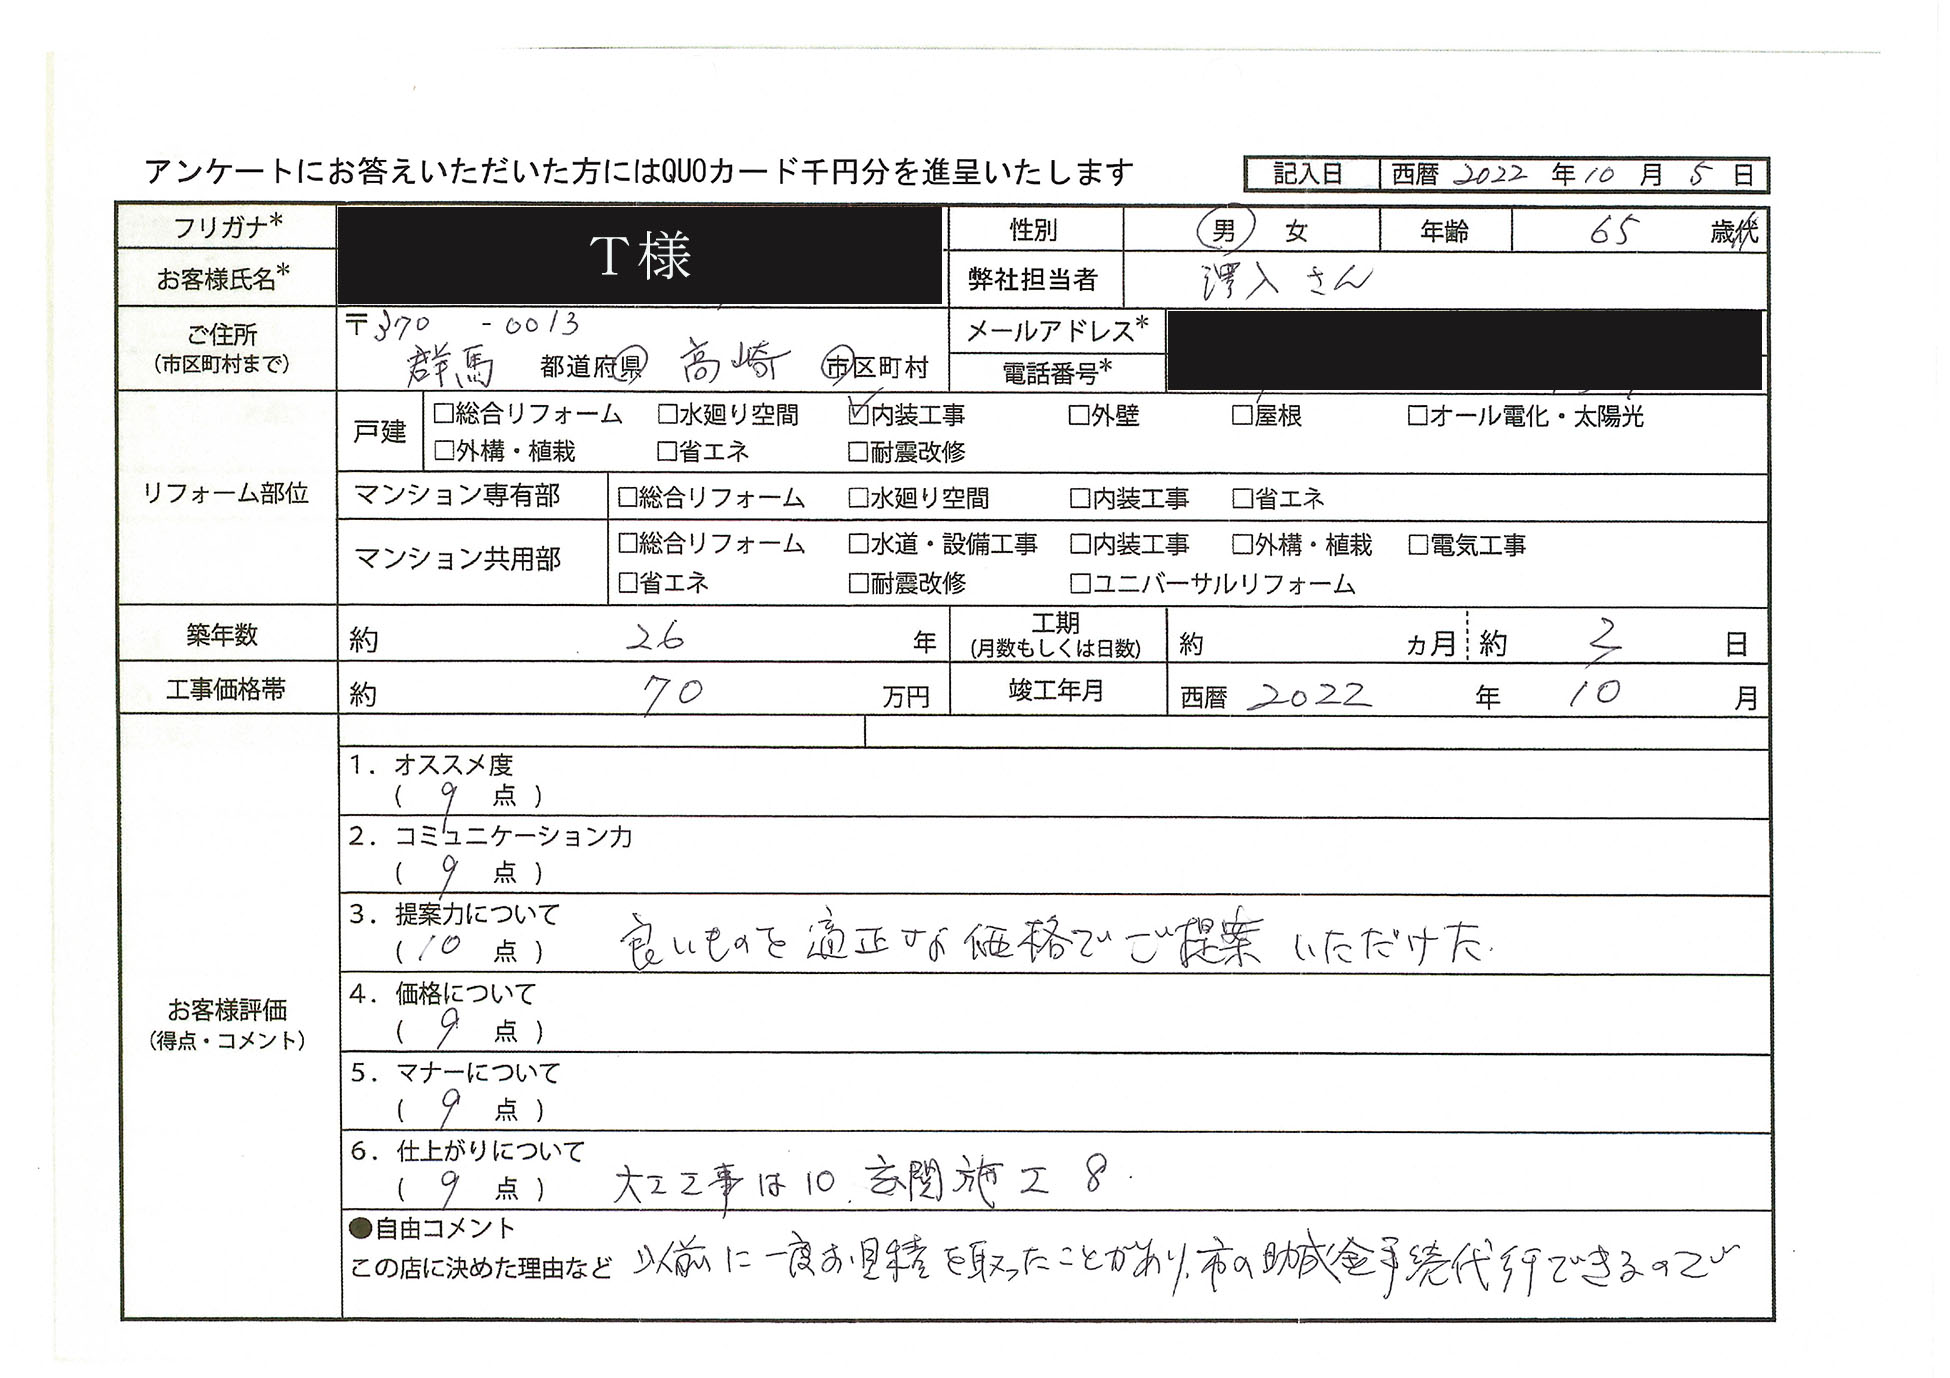 アンケートにお答えいただいた方にはQUOカード千円分を進呈いたします
記入日 西暦 2022 年 10 月 5 日
フリガナ* T様 性別 男 女 年齢 65 歳代
お客様氏名* 弊社担当者 澤入さん
ご住所 (市区町村まで) 〒370-0013
群馬 都道府県 高崎 市区町村
メールアドレス*
電話番号*
リフォーム部位
戸建 □総合リフォーム □水廻り空間 ☑内装工事 □外壁 □屋根 □オール電化・太陽光
□外構・植栽 □省エネ □耐震改修
マンション専有部 □総合リフォーム □水廻り空間 □内装工事 □省エネ
マンション共用部 □総合リフォーム □水道・設備工事 □内装工事 □外構・植栽 □電気工事
□省エネ □耐震改修 □ユニバーサルリフォーム
築年数 約 26 年 工期 (月数もしくは日数) 約 ヵ月 約 日
工事価格帯 約 70 万円 竣工年月 西暦 2022 年 10 月
お客様評価
(得点・コメント)
1. オススメ度
( 9 点 )
2. コミュニケーション力
( 9 点 )
3. 提案力について
( 10 点 ) 良いものを適正な価格でご提案いただけた.
4. 価格について
( 9 点 )
5. マナーについて
( 9 点 )
6. 仕上がりについて
( 9 点 ) 大工工事は10. 玄関施工 8.
●自由コメント
この店に決めた理由など 以前に一度お見積を取ったことがあり、市の助成金手続代行できるので